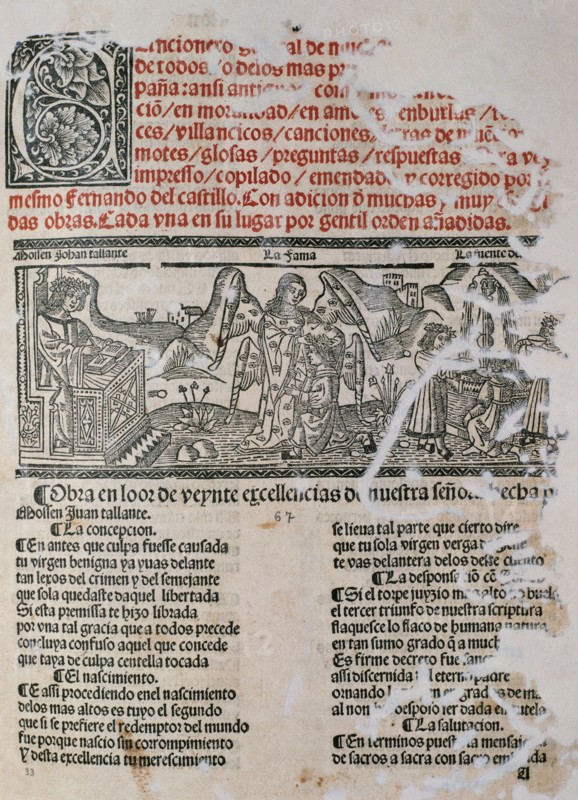 Cancionero general de
de todos, o delos mas
paña: ansi
ciō/en moralidad/en amores enburlas
ces/villancicos/canciones
motes/glosas/preguntas/respuestas
impresso/copilado/emendado y corregido por
mesmo Fernando del castillo. Con adicion d̄ muchas y muy
das obras. Cada vna en su lugar por gentil orden añadidas.
Mossen Johan tallante
La Fama
La fuente
¶Obra en loor de veynte excellencias de nuestra señora hecha
Mossen Juan tallante.
67
¶La concepcion.
¶En antes que culpa fuesse causada
tu virgen benigna ya yuas delante
tan lexos del crimen y del semejante
que sola quedaste daquel libertada
Si esta premissa te hizo librada
por vna tal gracia que a todos precede
concluya confuso aquel que concede
que taya de culpa centella tocada
¶El nascimiento.
¶E assi procediendo enel nascimiento
delos mas altos es tuyo el segundo
que si se prefiere el redemptor del mundo
fue porque nascio sin corrompimiento
Y desta excellencia tu merescimiento
33
se lieua tal parte que cierto dire
que tu sola virgen verga de
te vas delantera delos deste cuento
¶La desponsaciō cō
¶Si el torpe juyzio
el tercer triunfo de nuestra scriptura
flaquesce lo flaco de humana natura
en tan sumo grado q̄ a much
Es firme decreto fue
assi discernida eterno padre
ornando en grados de
al non
¶La salutacion.
¶En terminos puesta la
de sacros a sacra con sacro embaxada
A